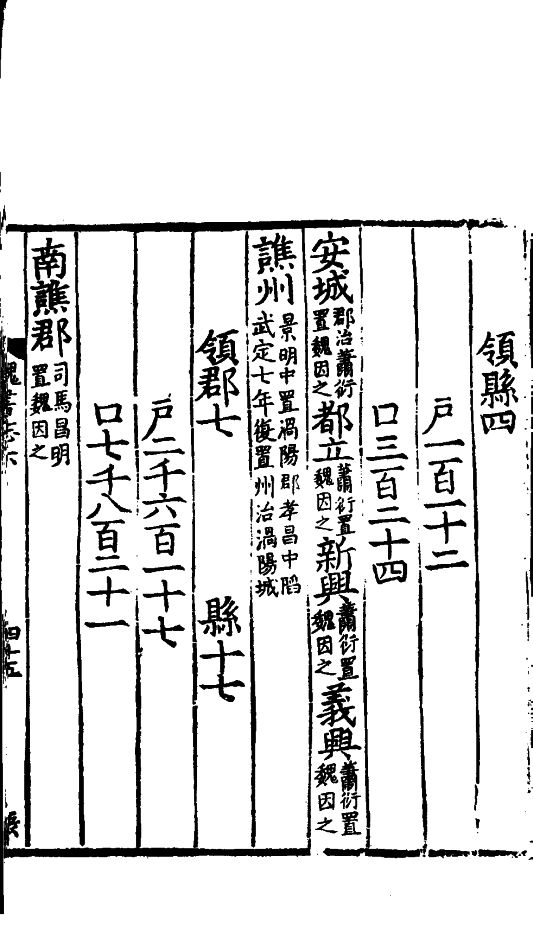 領縣四
戸一百一十二
口三百二十四
安城郡治蕭衍置魏因之都立蕭衍置魏因之新興蕭衍置魏因之義興蕭衍置魏因之
譙州景明中置渦陽郡孝昌中陷武定七年復置州治渦陽城
領郡七 縣十七
戸二千六百一十七
口七千八百二十一
南譙郡司馬昌明置魏因之
魏書志六
四十五